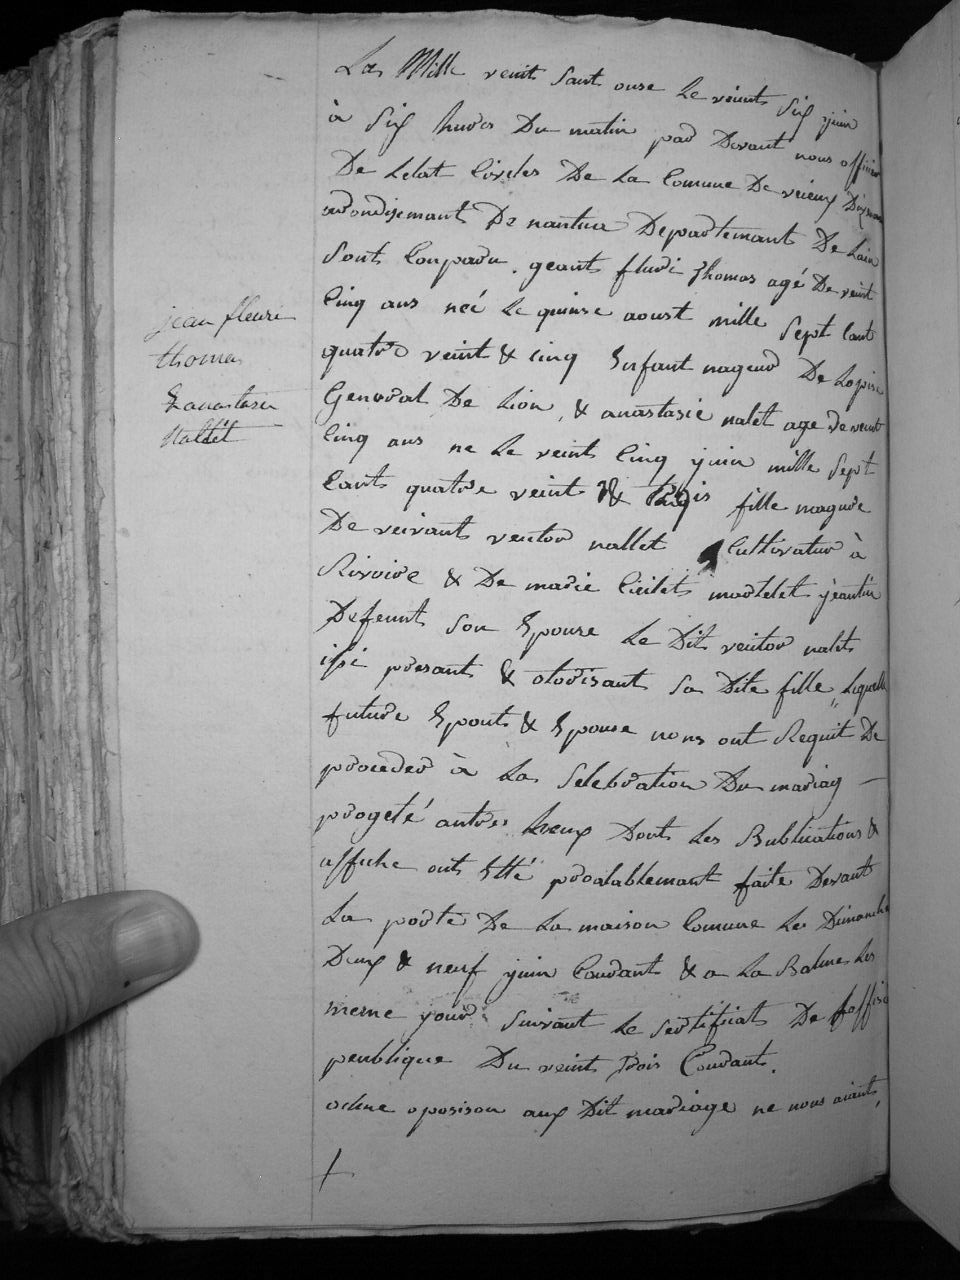 jean fleuri
thomas
& anastasie
Nallét
La Mille veint Sant onse Le veint Six juin
à Six hures Du matin par Devant nous officier
De Letat Civiles De La Comune De veieux
arondisemant De nantua Departemant De Lain
Sont Conparu . geant fluri Thomas agé De veint
Cinq ans neé Le quinse aoust mille Sept Cant
quatre veint & cinq Enfant mageur De Lopise
General De Lion , & anastasie nalet age de veint
Cinq ans ne Le veint Cinq juin mille Sept
Cant quatre veint & fille magure
De veivant veitor nallet Cultivatur à
Rivoire & De marie Cicilet martelet jeantin
Defeunt Son Epouse Le Dit veitor nalet
issi presant & otorisant Sa Dite fille , Lequelle
future Epout & Epouse nous ont Requit De
proceder à La Selebration Du mariag
progeté antres heux Dont Les Bublications &
affiche ont Etté prealablemant faite Devant
La porte De La maison Comune Les Dimanche
Deux & neuf juin Courant & a La Balme Les
meme jour Suivant Le Sertifiat De Laffise
peublique Du veint trois Courant .
ocune oposison aux Dit mariage ne nous aiant